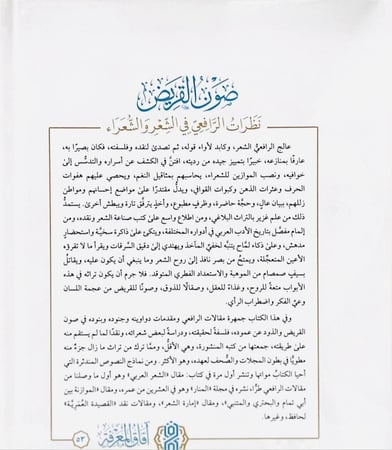 صَوْنُ القَرِيضِ
نَظَرَاتُ الرَّافِعِيِّ فِي الشِّعْرِ وَالشُّعَرَاءِ
عالج الرافعيُّ الشعر، وكابد لأواء قوله، ثم تصدى لنقده وفلسفته، فكان بصيرًا به،
عارفًا بمنازعه، خبيرًا بتمييز جيده من رديئه، افتنَّ في الكشف عن أسراره والتدسُّس إلى
خوافيه، ونصب الموازين للشعراء، يحاسبهم بمثاقيل النغم، ويحصي عليهم هفوات
الحرف وعثرات الذهن وكبوات القوافي، ويدلُّ مقتدرًا على مواضع إحسانهم ومواطن
زللهم، ببيان عالٍ، وحجَّة حاضرة، وظرف مطبوع، وأخذٍ يترفَّق تارة ويبطش أخرى. يستمدُّ
ذلك من علم غزير بالتراث البلاغي، ومن اطلاع واسع على كتب صناعة الشعر ونقده، ومن
إلمام مفصَّل بتاريخ الأدب العربي في أدواره المختلفة، ويتكئ على ذاكرة سخيَّة واستحضارٍ
مدهش، وعلى ذكاء لمَّاح يتنبَّه لخفيِّ المآخذ ويهتدي إلى دقيق السرقات ويقرأ ما لا تقرؤه
الأعين المتعجِّلة، ويمتحُ من بصر نافذ إلى روح الشعر وما ينبغي أن يكون عليه، ويقاتلُ
بسيفٍ صمصام من الموهبة والاستعداد الفطري المتوقد. فلا جرم أن يكون تراثه في هذه
الأبواب متعةً للروح، وغذاءً للعقل، وصقالًا للذوق، وصونًا للقريض من عجمة اللسان
وعيّ الفكر واضطراب الرأي.
وفي هذا الكتاب جمهرة مقالات الرافعي ومقدمات دواوينه وجنوده وبنوده في صون
القريض والذود عن عموده، فلسفةً لحقيقته، ودراسةً لبعض شعرائه، ونقدًا لما لم يستقم منه
على طريقته، جمعتها من كتبه المنشورة، وهي الأقلُّ، وممَّا ترك من تراث ما زال جزءٌ منه
مطويًّا في بطون المجلات والصُّحف لعهده، وهو الأكثر. ومن نماذج النصوص المندثرة التي
أحيا الكتابُ مواتها وتنشر أول مرة في كتاب: مقال «الشعر العربي» وهو أول ما وصلنا من
مقالات الرافعي طرًّا، نشره في مجلة «المنار» وهو في العشرين من عمره، ومقال «الموازنة بين
أبي تمام والبحتري والمتنبي»، ومقال «إمارة الشعر»، ومقالات نقد «القصيدة العُمَريَّة»
لحافظ، وغيرها.
آفَاقُ المَعْرِفَةِ
٥٣